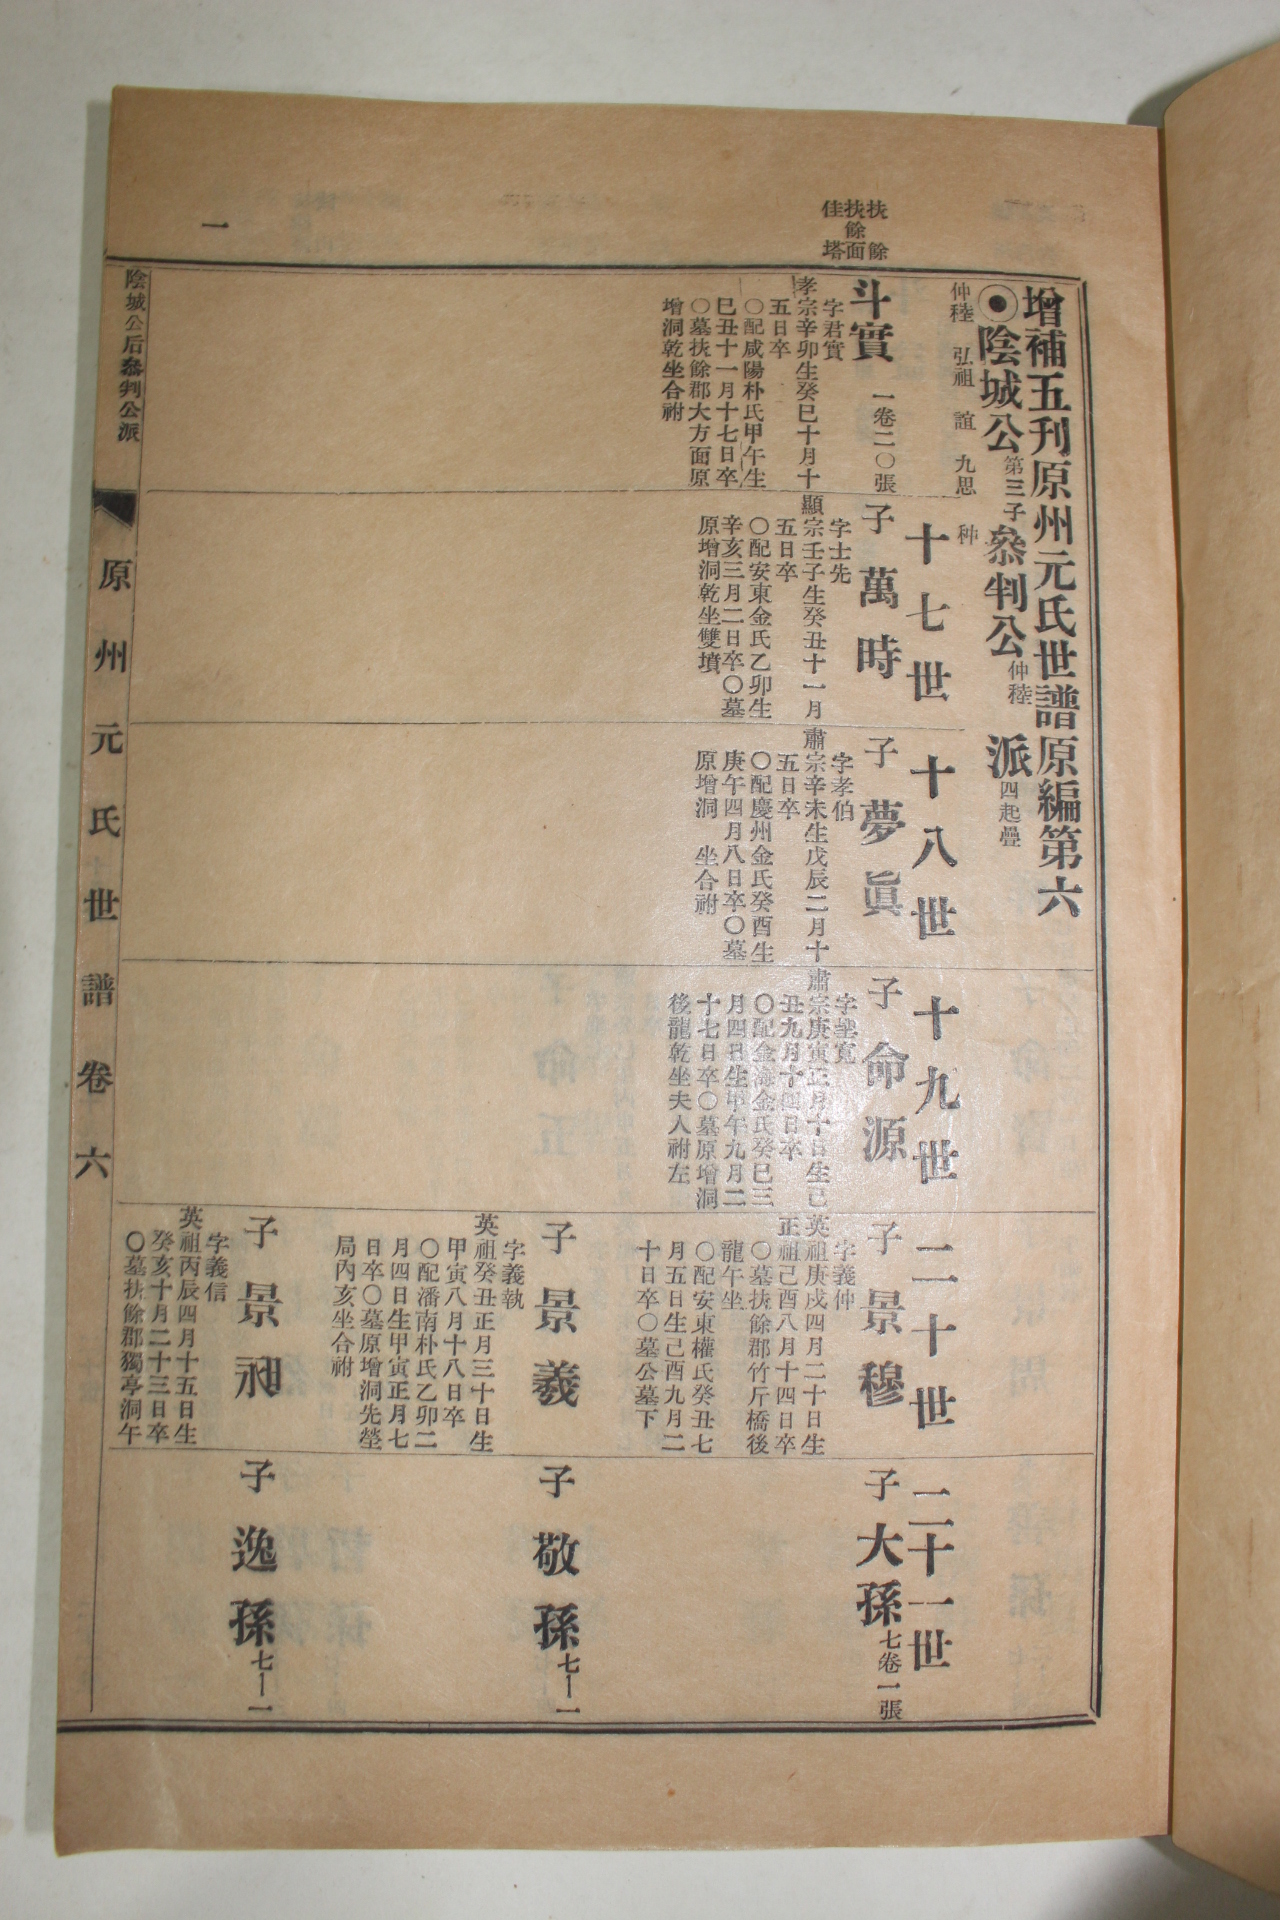 增補五刊原州元氏世譜原編第六
⦿陰城公第三子叅判公仲稑派四起疊
仲稑 弘祖 誼 九思 种
十七世
十八世
十九世
二十世
二十一世
扶餘
扶餘面
佳塔
斗實 一卷二〇張
字君實
孝宗辛卯生癸巳十月十
五日卒
〇配咸陽朴氏甲午生
巳丑十一月十七日卒
〇墓扶餘郡大方面原
增洞乾坐合祔
子萬時
字士先
顯宗壬子生癸丑十一月
五日卒
〇配安東金氏乙卯生
辛亥三月二日卒〇墓
原增洞乾坐雙墳
子夢眞
字孝伯
肅宗辛未生戊辰二月十
五日卒
〇配慶州金氏癸酉生
庚午四月八日卒〇墓
原增洞 坐合祔
子命源
肅宗庚寅正月十日生己
丑九月十四日卒
〇配金海金氏癸巳三
月四日生甲午九月二
十七日卒〇墓原增洞
後龍乾坐夫人祔左
子景穆
字義仲
英祖庚戌四月二十日生
正祖己酉八月十四日卒
〇墓扶餘郡竹斤橋後
龍午坐
〇配安東權氏癸丑七
月五日生己酉九月二
十日卒〇墓公墓下
子大孫七卷一張
子景羲
字義執
英祖癸丑正月三十日生
甲寅八月十八日卒
〇配潘南朴氏乙卯二
月四日生甲寅正月七
日卒〇墓原增洞先塋
局內亥坐合祔
子敬孫七—一
子景昶
字義信
英祖丙辰四月十五日生
癸亥十月二十三日卒
〇墓扶餘郡獨亭洞午
子逸孫七—一
陰城公后叅判公派
原州元氏世譜 卷六
一